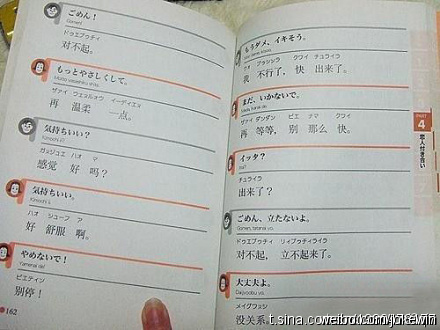 ごめん！
Gomen!
ドゥエブゥチィ
对不起。
もっとやさしくして。
ザァイ ウェヌルォウ イーディエヌ
再 温柔 一点。
気持ちいい？
Kimochi ii?
ガァンジュエ ハオ マ
感觉 好 吗？
気持ちいい。
Kimochi ii.
ハオ シューフ ア
好 舒服 啊。
やめないで！
Yamenai de!
ビエティン
别停！
162
もうダメ、イキそう。
ウオ ブゥシンラ クワイ チュライラ
我 不行了， 快 出来了。
まだ、いかないで。
ザァイ ダンダン ビエ ナマ クワイ
再 等等， 别 那么 快。
イッタ？
チュライラ
出来了？
ごめん、立たないよ。
Gomen, tatanai yo.
ドゥエブゥチィ リィブゥチィライラ
对不起， 立不起来了。
大丈夫よ。
Daijyoobu yo.
メイグワンシ
没关系。
PART
4
恋人付き合い